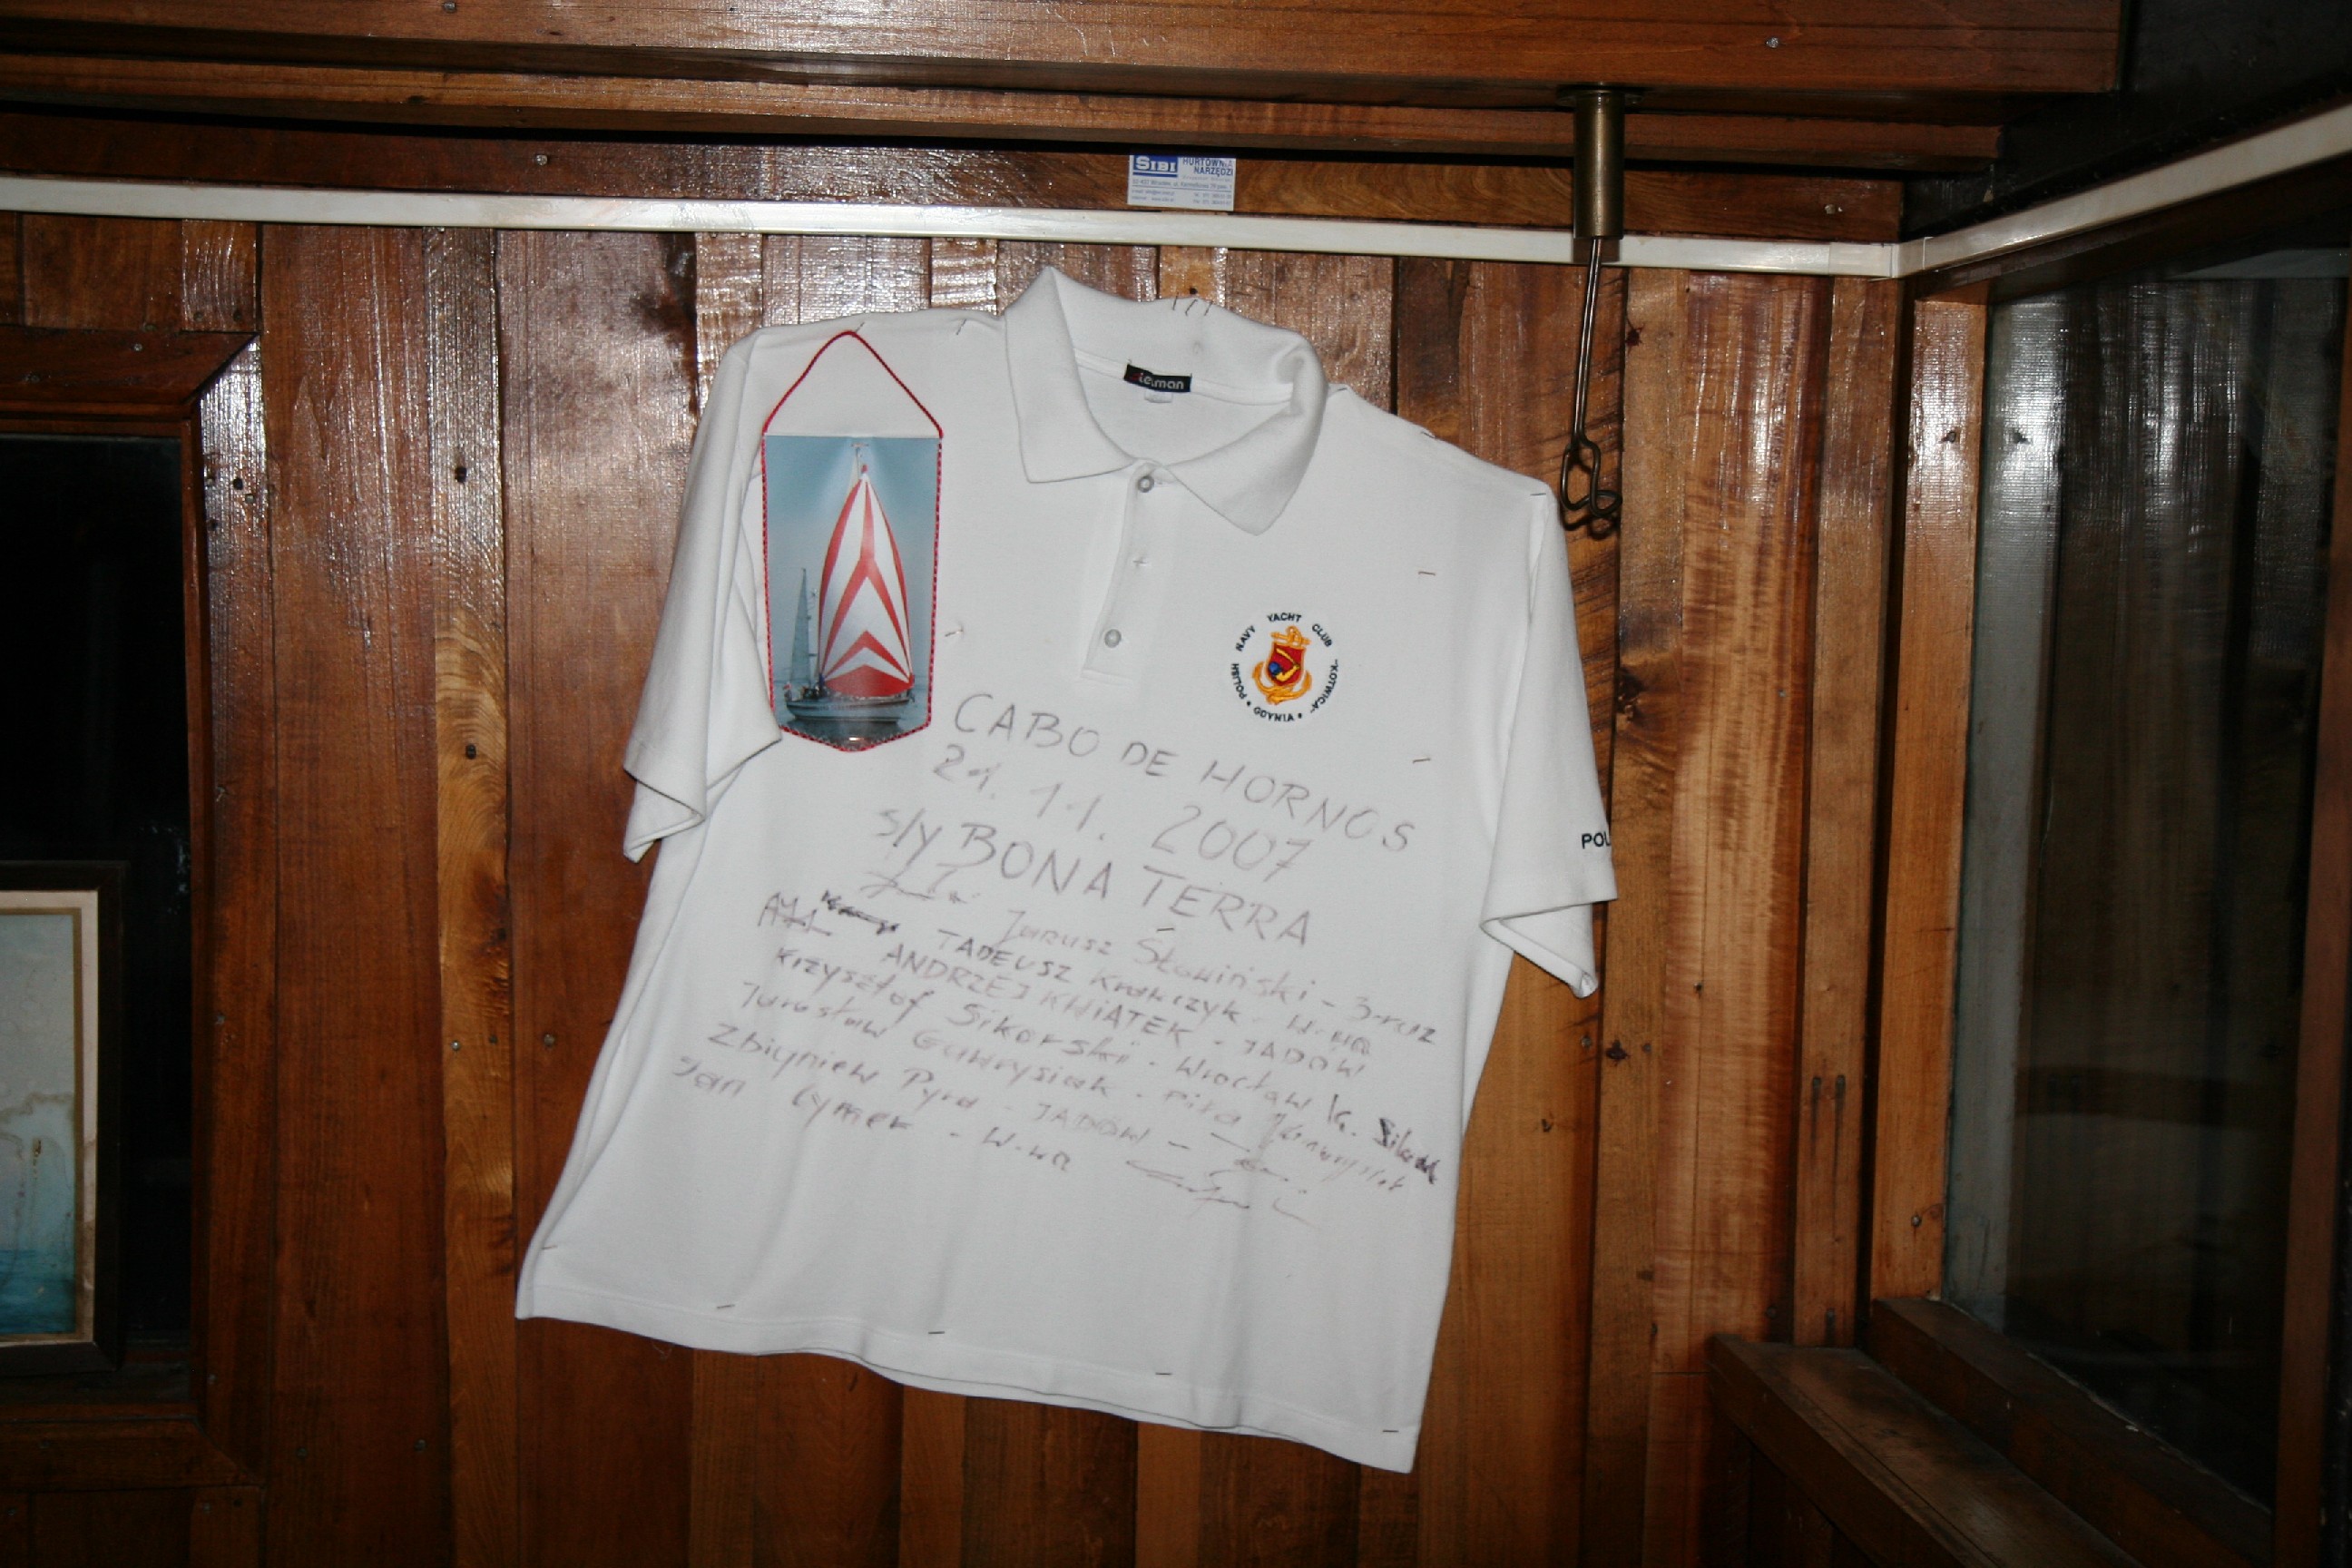 SIBI HURTOWNIA NARZĘDZI
POLISH NAVY YACHT CLUB "KOTWICA"
GDYNIA
POL
CABO DE HORNOS
21. 11. 2007
s/y BONA TERRA
Janusz Słowiński - 3-raz
TADEUSZ Krawczyk - W-wa
ANDRZEJ KWIATEK - JADÓW
Krzysztof Sikorski - Wrocław K. Sikorski
Jarosław Gawrysiak - Piła
Zbigniew Pyra - JADÓW -
Jan Cymer - W-wa